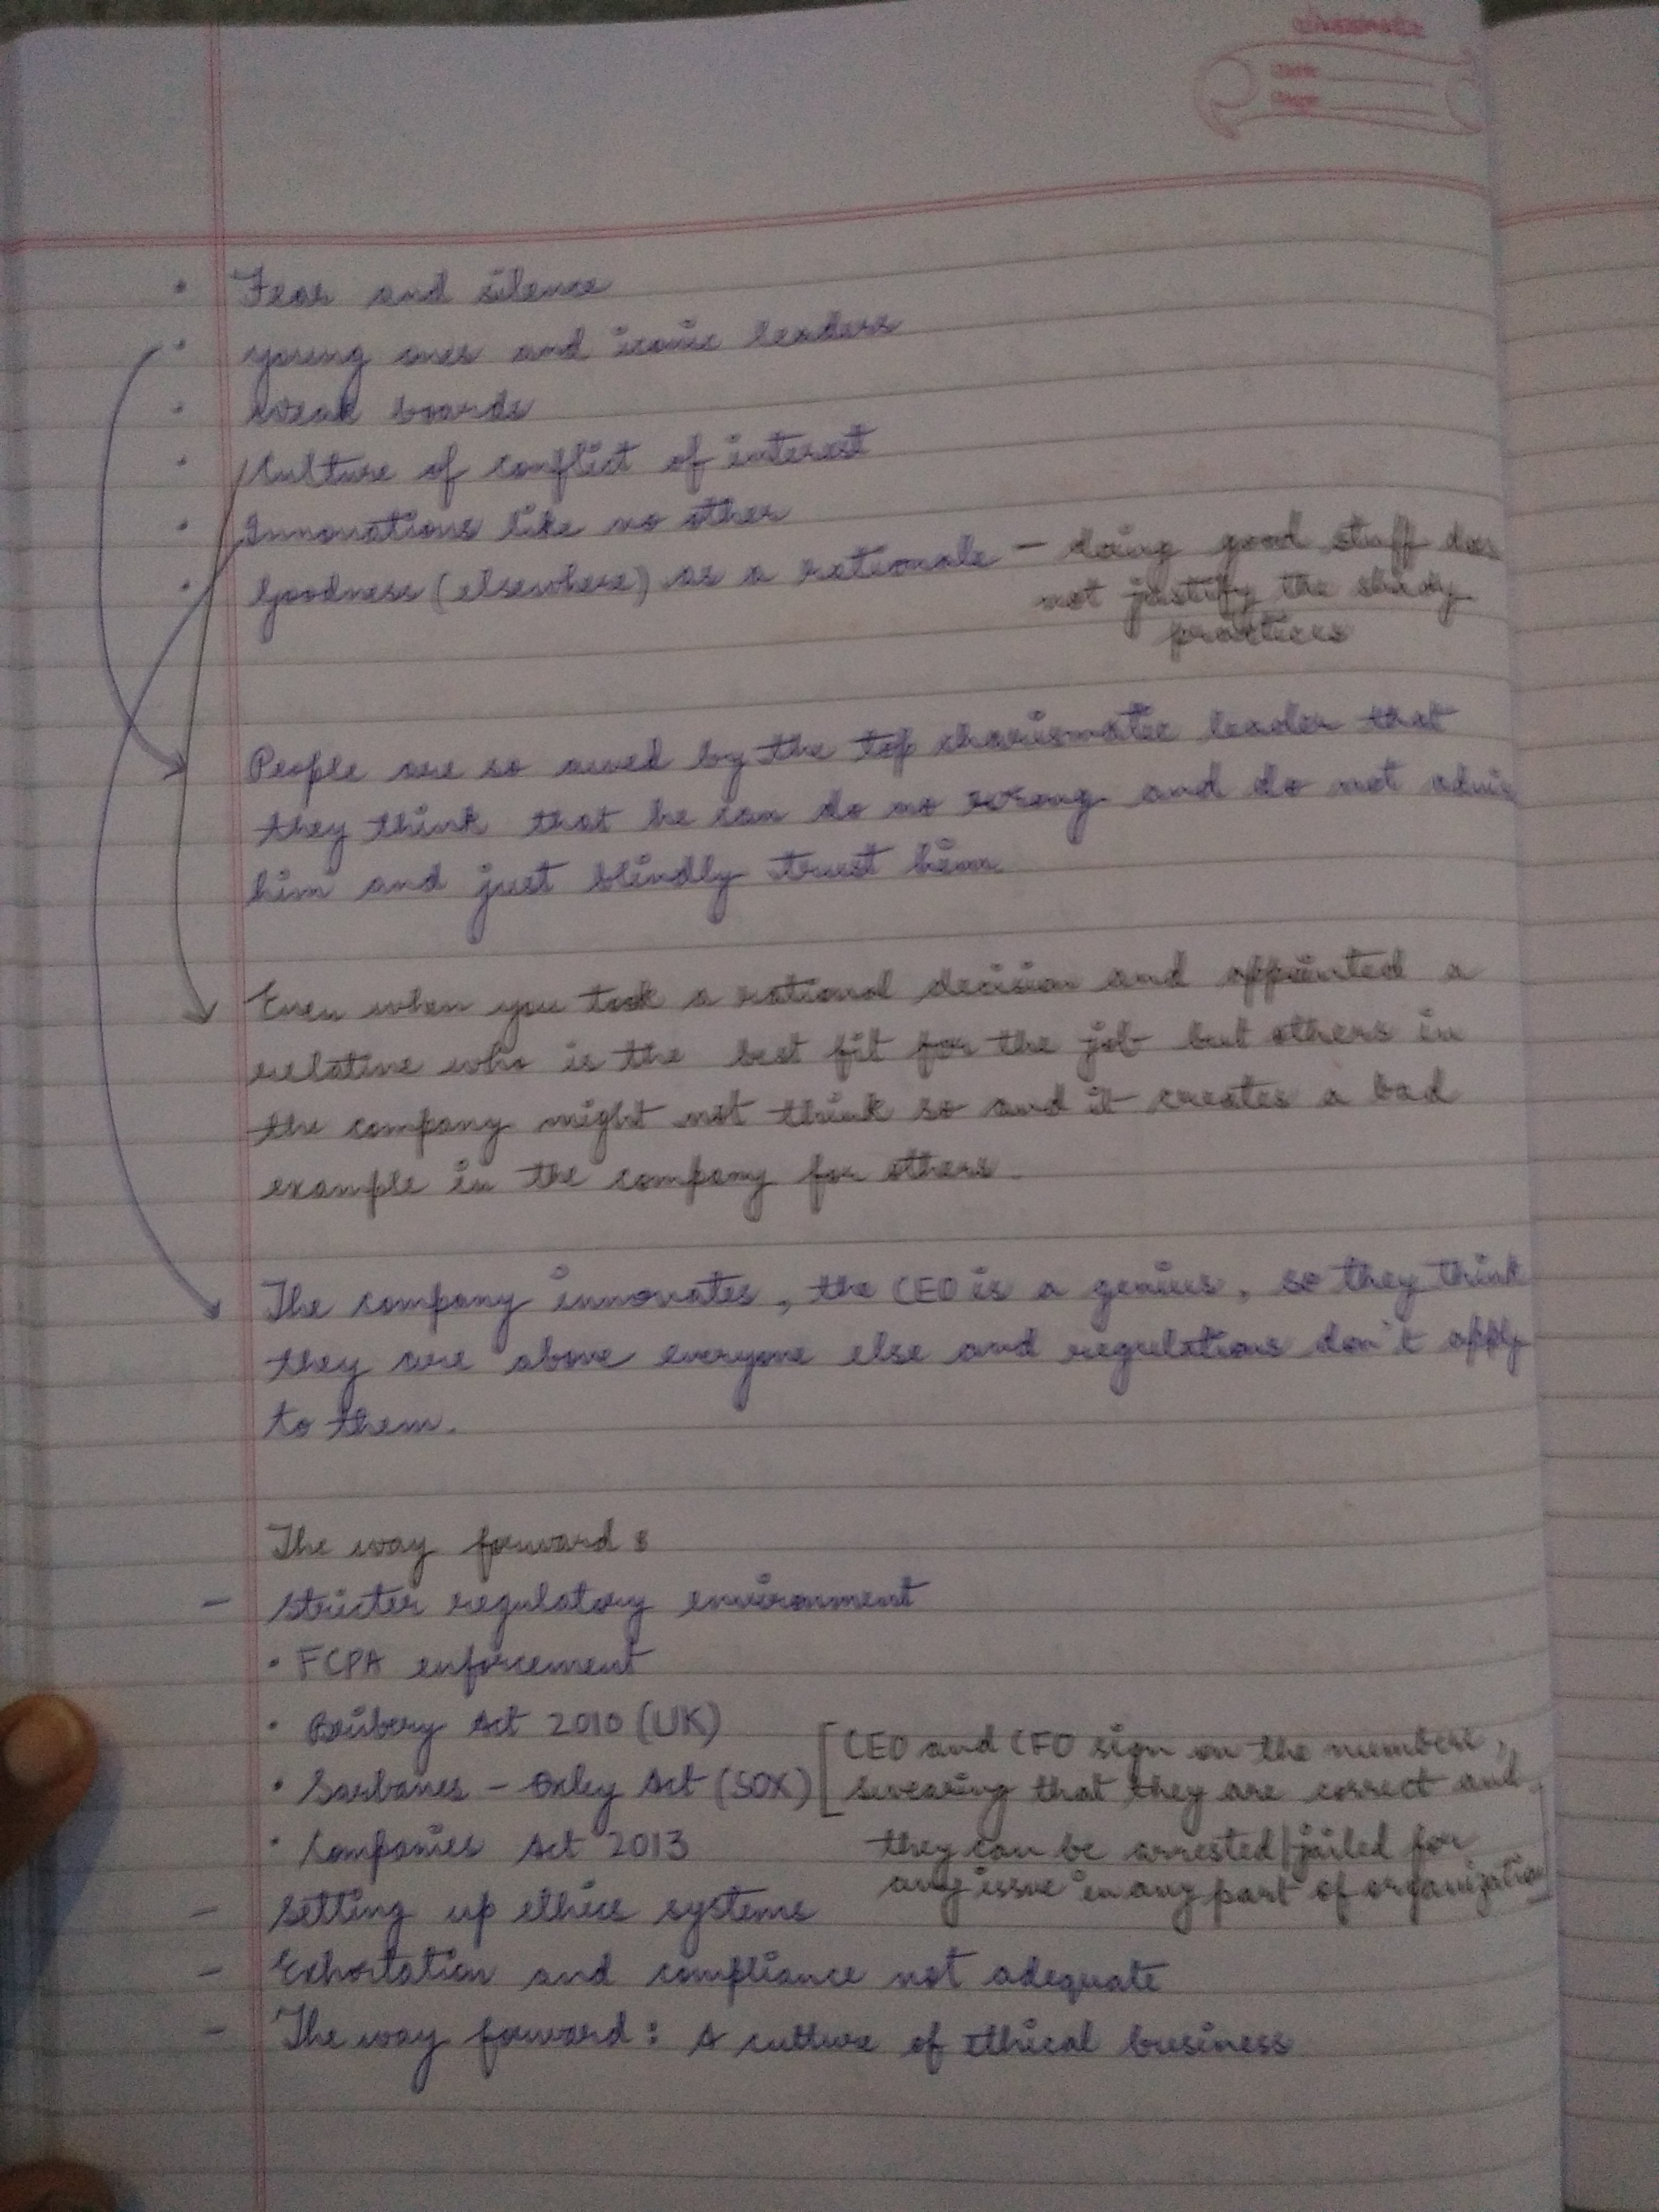 classmate
Date
Page
• Fear and silence
• young ones and iconic leaders
• weak boards
• Culture of conflict of interest
• Innovations like no other
• Goodness (elsewhere) as a rationale – doing good stuff does
not justify the shady
practices
People are so awed by the top charismatic leader that
they think that he can do no wrong and do not
him and just blindly trust him.
Even when you took a rational decision and appointed a
relative who is the best fit for the job but others in
the company might not think so and it creates a bad
example in the company for others.
The company innovates, the CEO is a genius, so they think
they are above everyone else and regulations don't apply
to them.
The way forward :
– Stricter regulatory environment
• FCPA enforcement
• Bribery Act 2010 (UK)
• Sarbanes – Oxley Act (SOX) [CEO and CFO sign on the numbers,
swearing that they are correct and
they can be arrested/jailed for
any issue in any part of organization]
• Companies Act 2013
– Setting up ethics systems
– Exhortation and compliance not adequate
– The way forward : A culture of ethical business